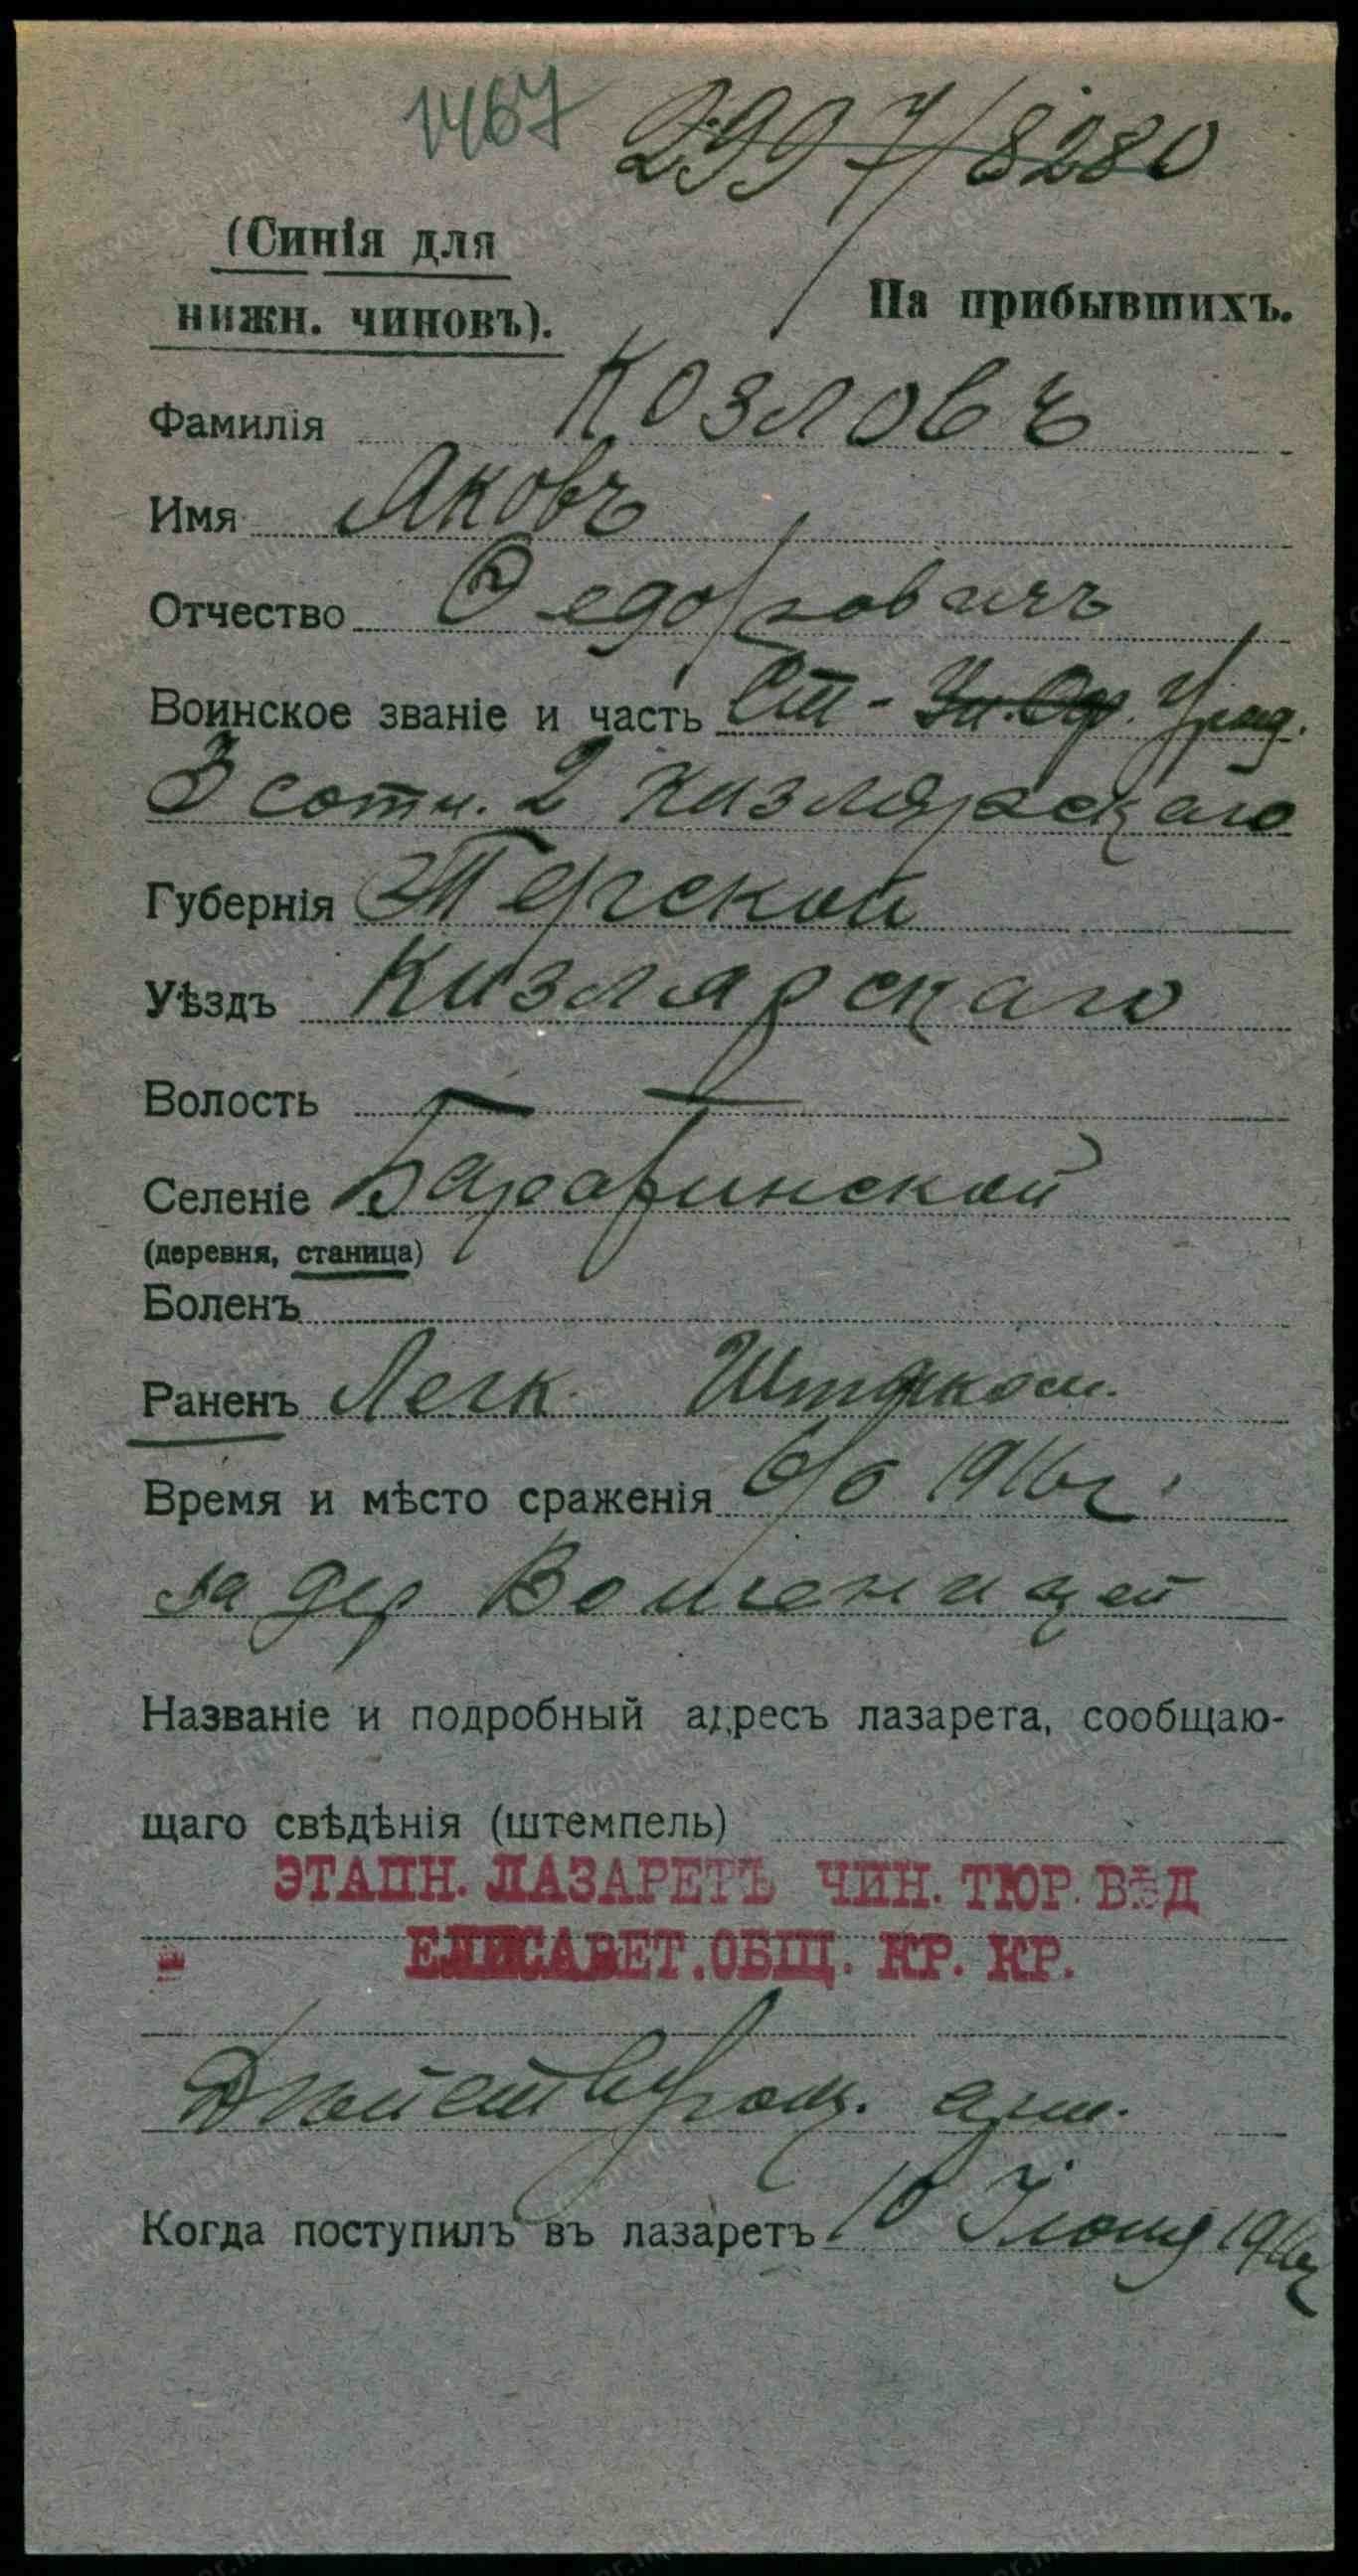 1467 2997/8280
(Синія для
нижн. чиновъ).
На прибывшихъ.
Фамилія Козловъ
Имя Яковъ
Отчество Ѳедоровичъ
Воинское званіе и часть Ст- Ун.Оф. Уряд.
3 сотн. 2 Кизлярскаго
Губернія Терской
Уѣздъ Кизлярскаго
Волость —
Селеніе
(деревня, станица)
Боленъ
Раненъ Легк. Штыком.
Время и мѣсто сраженія 6/6 1916г.
за дер
Названіе и подробный адресъ лазарета, сообщаю-
щаго свѣдѣнія (штемпель)
ЭТАПН. ЛАЗАРЕТЪ ЧИН. ТЮР. ВѢД
ЕЛИСАВЕТ. ОБЩ. КР. КР.
Дѣйствующ. арм.
Когда поступилъ въ лазаретъ 10 Іюня 1916г